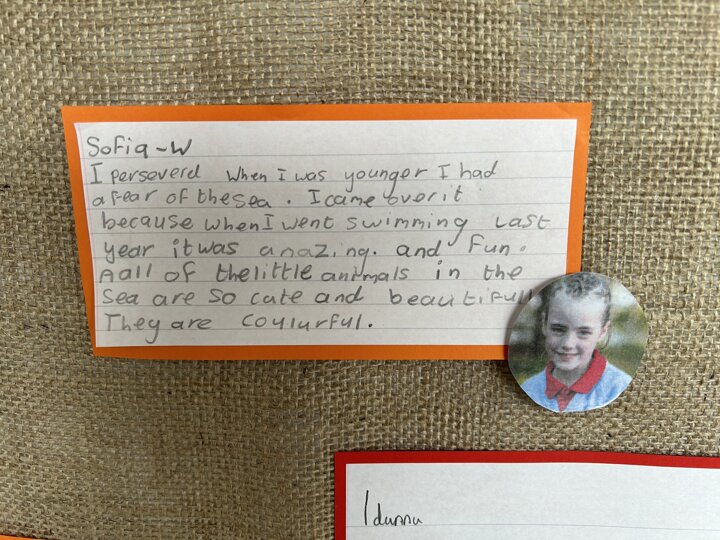 Sofia-W
I perseverd when I was younger I had
a fear of the sea. I came over it
because when I went swimming Last
year it was amazing. and fun.
Aall of the little animals in the
sea are so cute and beautifull
They are coulurful.
Idunnu